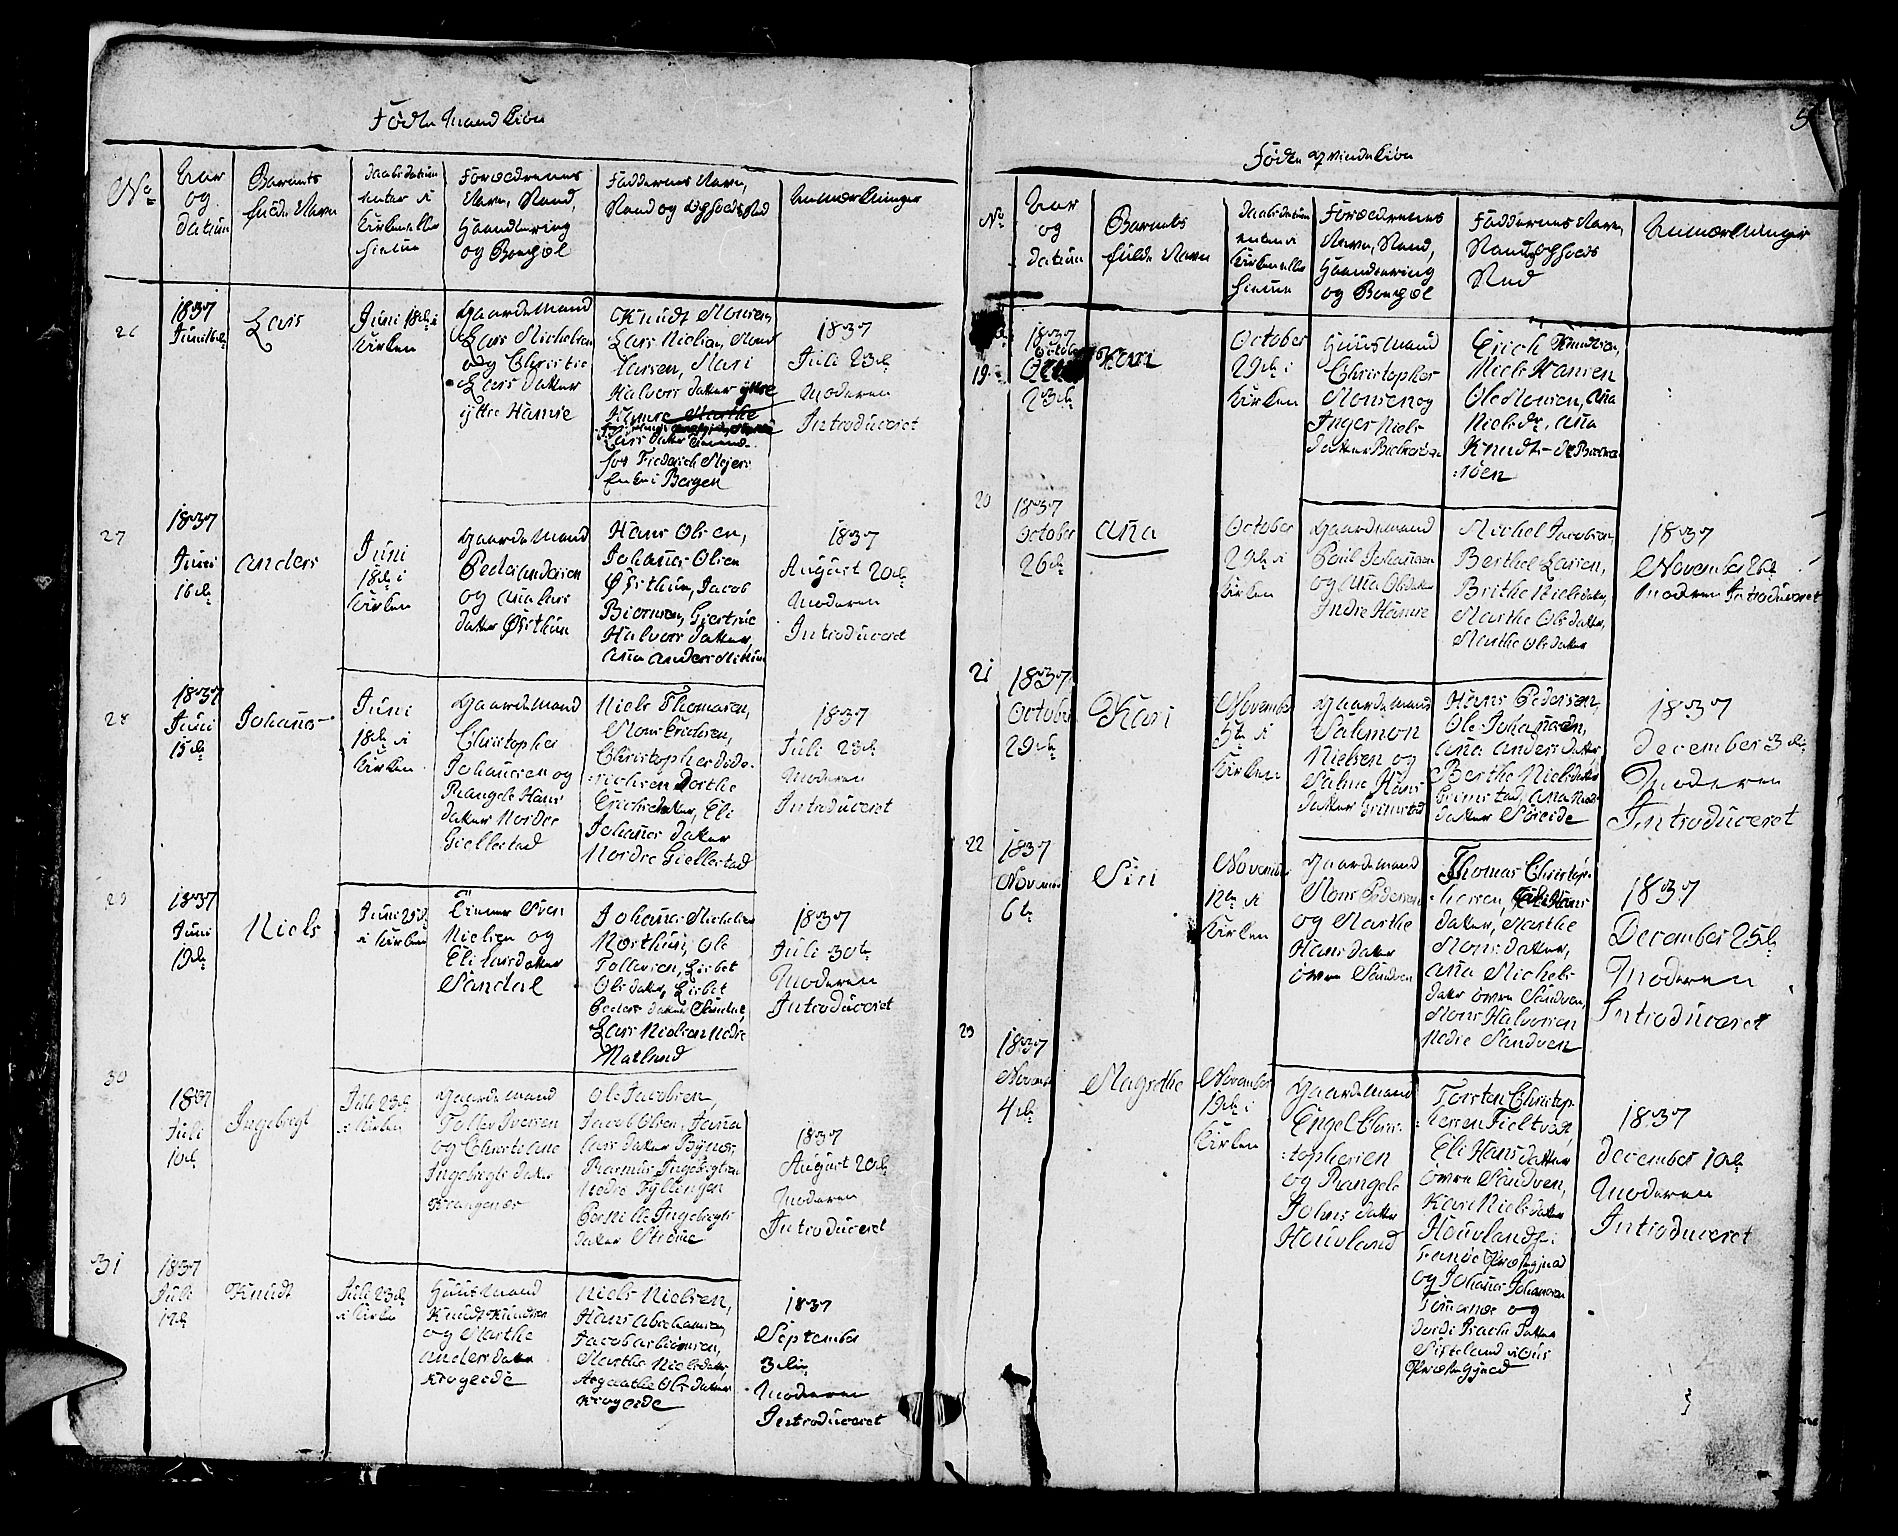 Födte Mandkiøn
No
Aar
og
datum
Barnets
fulde Navn
Daabsdatum
enten i
Kirken eller
hiemme
Forældrenes
Navn, Stand,
Haandtering
og Bopæl
Faddernes Navn,
Stand og Opholdsted
Anmærkninger
26
1837
Juni
Lars
Juni 18de i
Kirken
Gaardemand
Lars Michelsen
og Christie
Lars datter
yttre Hamre
Knudt Monsen,
Lars Nielsen, Mons
Larsen, Mari
Halvors datter yttre
Hamre Marthe
Lars datter
hos Friderich Meyers
Enke i Bergen
1837
Juli 23de
Moderen
Introduceret
27
1837
Juni
16de
Anders
Juni
18de i
Kirken
Gaardemand
Peder Andersen
og Ana Lars
datter Øisthun
Hans Olsen,
Johanes Olsen
Øisthun, Jacob
Biørnsen, Giertrue
Halvors datter,
Ana Anders Mithun
1837
August 20de
Moderen
Introduceret
28
1837
Juni
15de
Johanes
Juni
18de i
Kirken
Gaardemand
Christopher
Johanesen og
Rangele Hans
datter Nordre
Giellestad
Niels Thomasen,
Mons Erichsen,
Christopher Dide-
richsen Dorthe
Erichsdatter, Eli
Johanes datter
Nordre Giellestad
1837
Juli 23de
Moderen
Introduceret
29
1837
Juni
19de
Niels
Juni 25de
i Kirken
Sven
Nielsen og
Eli Larsdatter
Sandal
Johanes Michelsen
Northun, Ole
Tollevsen, Lisbet
Olsdatter, Lisbet
Peders datter Sandal,
Lars Nielsen Nedre
Natland
1837
Juli 30te
Moderen
Introduceret
30
1837
Juli
10de
Ingebregt
Juli 23de
i Kirken
Gaardemand
Tollev Iversen
og Christiane
Ingebregts datter
Krangenes
Ole Jacobsen,
Jacob Olsen, Jana
Lars datter Bognøe,
Rasmus Ingebregtsen
Nedre Fyllingen
Pernille Ingebregts
datter Strøme
1837
August 20de
Moderen
Introduceret
31
1837
Juli
17de
Knudt
Juli 23de
i Kirken
Huusmand
Knudt Knudtsen
og Marthe
Anders datter
Krogeide
Niels Nielsen,
Hans Abrahamsen,
Jacob Asbiørnsen,
Marthe Nielsdatter,
Aagaathe Ols datter
Krogeide
1837
September
3die
Moderen
Introduceret
Födte qvindekiøn
5
No
Aar
og
datum
Barnets
fulde Navn
Daabsdatum
enten i
Kirken eller
hiemme
Forældrenes
Navn, Stand,
Haandtering
og Bopæl
Faddernes Navn,
Stand og Opholds
Sted
Anmærkninger
19
1837
October
23de
Kari
October
29de i
Kirken
Huusmand
Christopher
Monsen og
Inger Niels
datter
Erich Knudtsen,
Niels Hansen
Ole Monsen, Ana
Nielsdr, Ana
Knudts-dr
20
1837
October
26de
Ana
October
29de i
Kirken
Gaardemand
Poul Johanesen
og Ana Olsdatter
Indre Hamre
Michel Jacobsen,
Berthel Larsen,
Brithe Nielsdatter,
Marthe Ols datter,
Marthe Ols datter
1837
November 26de
Moderen Introduceret
21
1837
October
29de
Kari
November
5te i
Kirken
Gaardemand
Salamon
Nielsen og
Salme Hans
datter Grimstad
Hans Pedersen,
Ole Johanesen,
Ana Anders datter,
Berthe Nielsdatter
Grimstad, Ana Niels
datter Søreide
1837
December 3de
Moderen
Introduceret
22
1837
November
6te
Siri
November
12te i
Kirken
Gaardemand
Mons Pedersen
og Marthe
Hans datter
övre Sandven
Thomas Christop-
hersen, Eli Hans
datter, Marthe
Mons datter,
Ana Michels-
datter övre Sandven,
Mons Halvorsen
Nedre Sandven
1837
December 25de
Moderen
Introduceret
23
1837
November
4de
Magrethe
November
19de i
Kirken
Gaardemand
Engel Chris-
tophersen
og Rangele
Johns datter
Houvland
Torsten Christop-
hersen Tieltvedt,
Eli Hans datter
övre Sandven,
Kari Nielsdatter
Houvland i
Præstegjeld
og Johanes Johanesen
og
datter
i Ous
Præstegjæld
1837
December 10de
Moderen
Introduceret